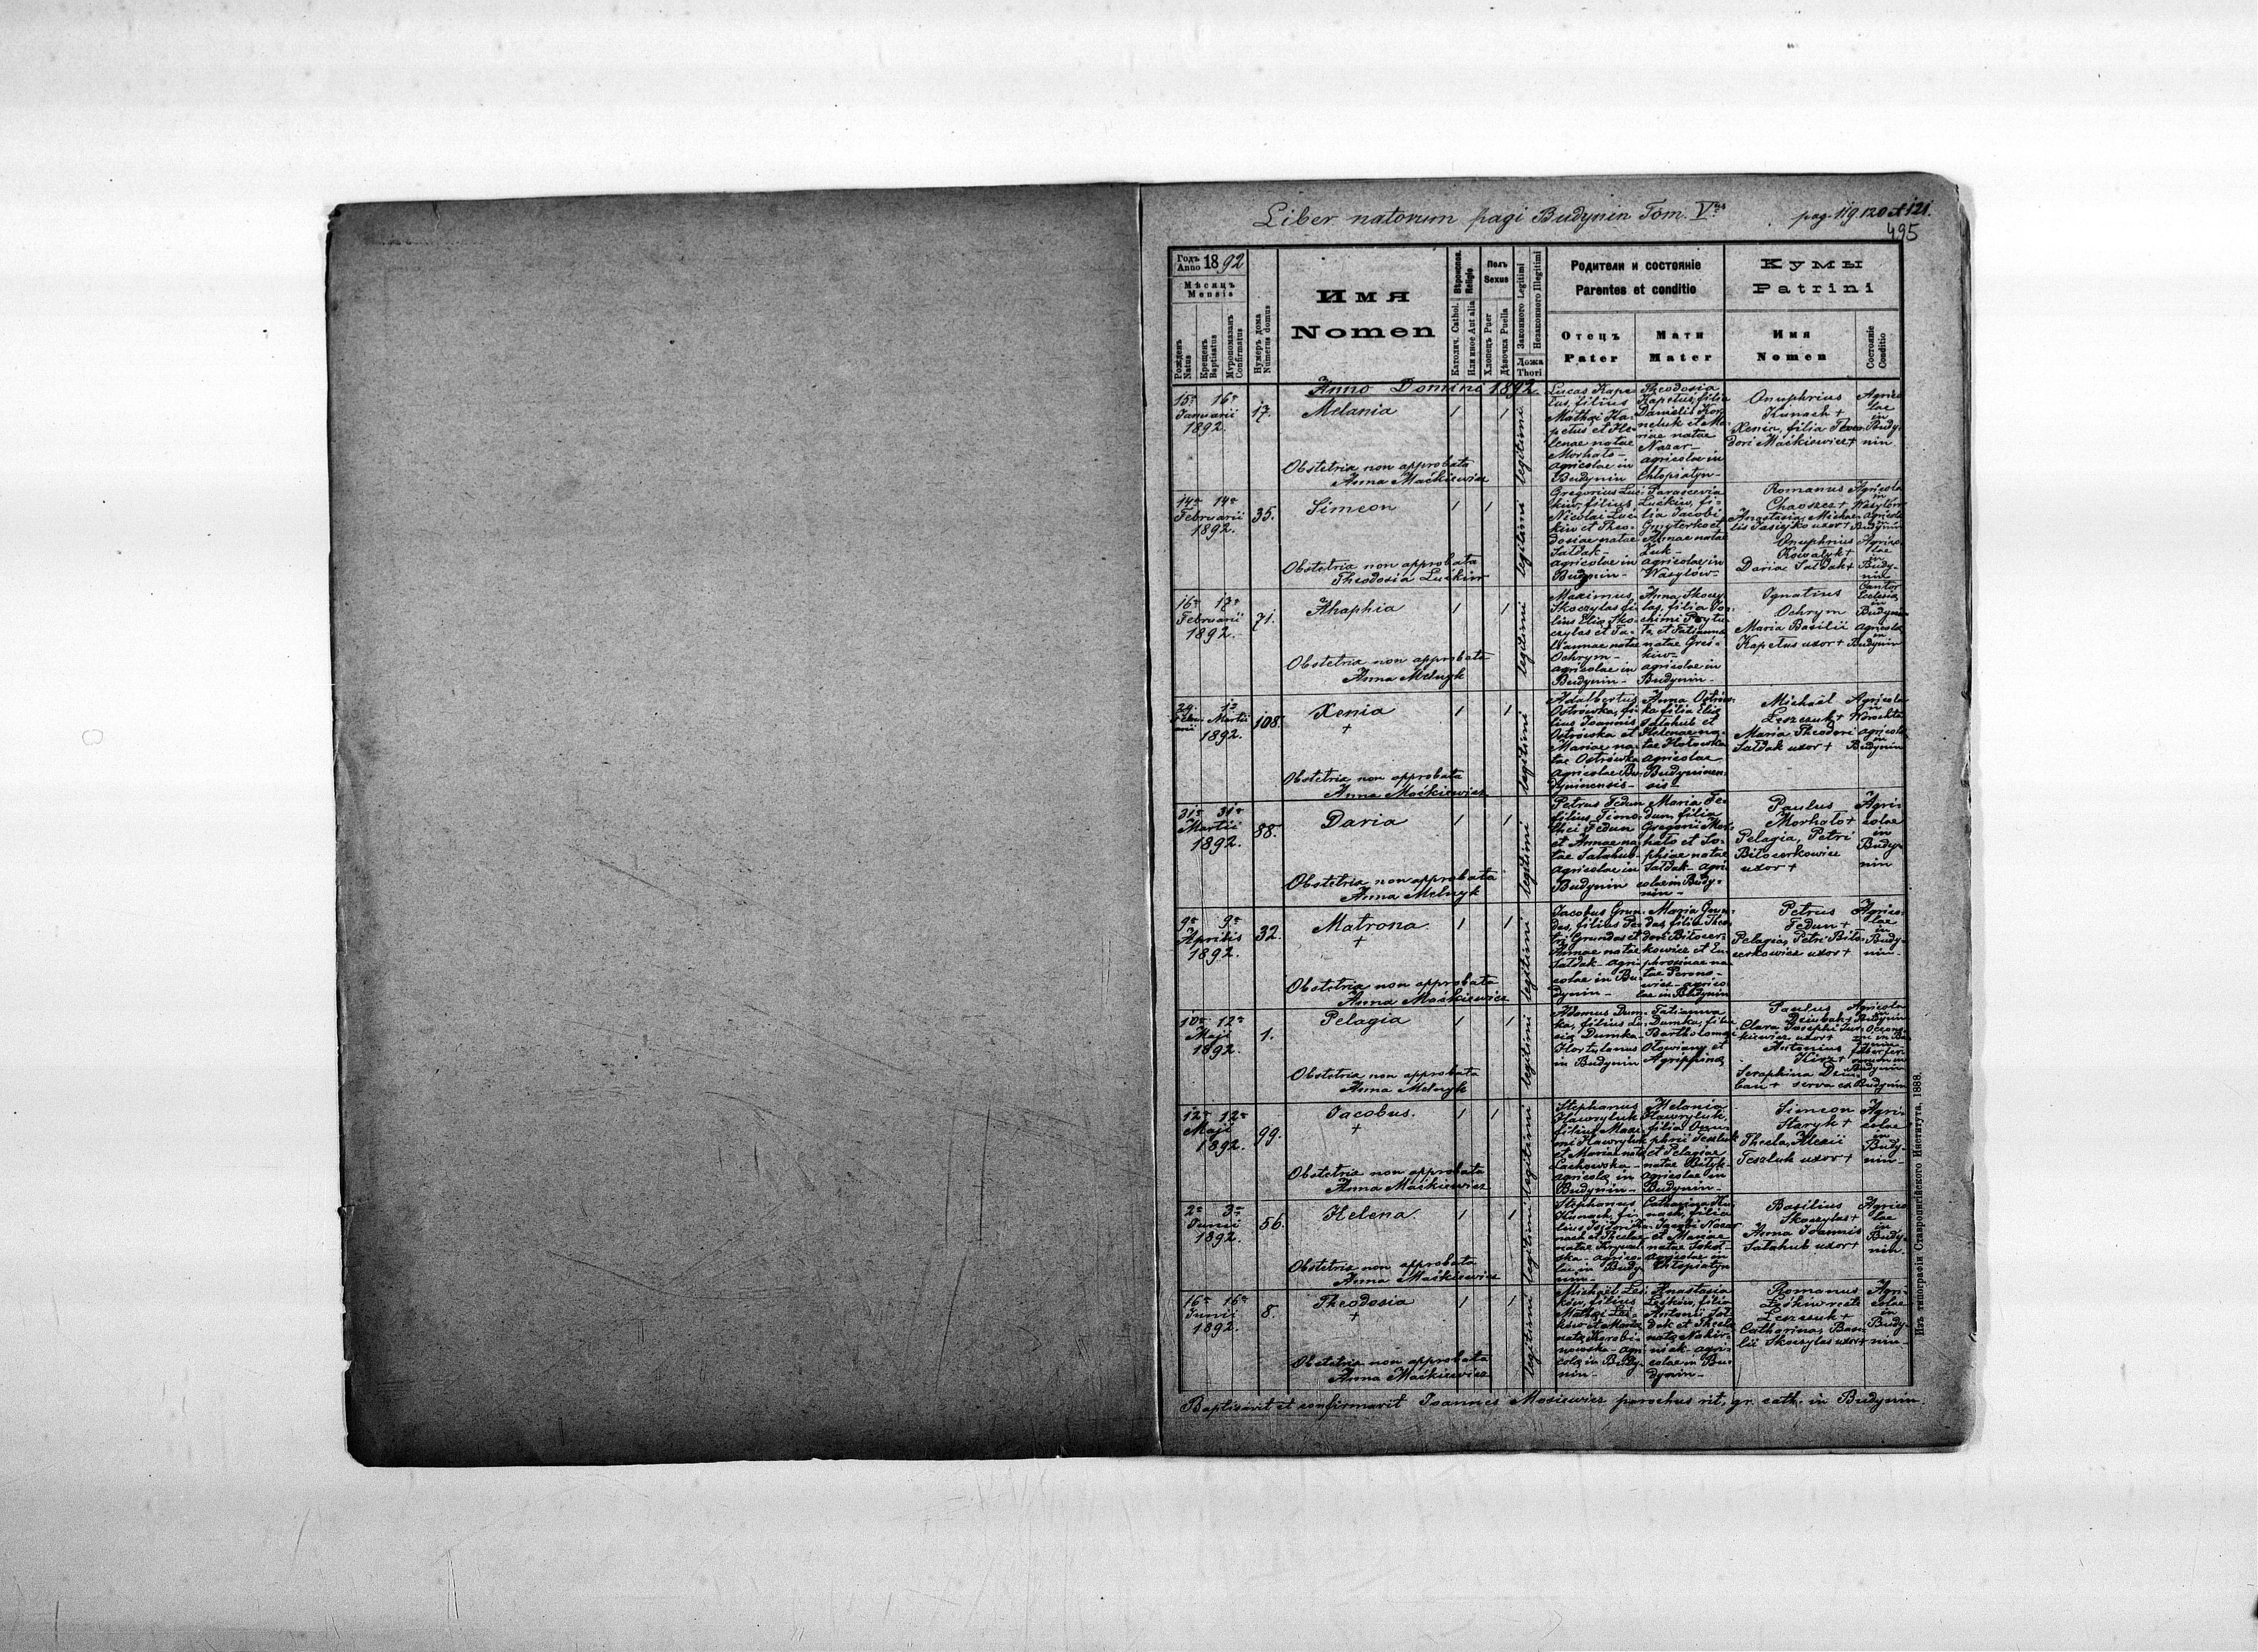 Liber natorum pagi Budynin Tom. V^us pag. 119. 120 et 121.
495
Годъ Anno 1892
Мѣсяцъ
Mensis
Рожденъ
Natus
Крещенъ
Baptisatus
Муропомазанъ
Confirmatus
Нумеръ дома
Numerus domus
Имя
Nomen
Вѣроисповѣд.
Religio
Католич. Cathol.
Или иное Aut alia
Полъ
Sexus
Хлопецъ Puer
Дѣвочка Puella
Законного Legitimi
Незаконного Illegitimi
Ложа
Thori
Родители и состоянie
Parentes et conditio
Отецъ
Pater
Мати
Mater
Кумы
Patrini
Имя
Nomen
Состоянie
Conditio
Anno Domini 1892.
15a 16a
Januarii
1892.
17.
Melania
1 1
legitimi
Obstetrix non approbata
Anna Maćkiewicz
Lucas Kape-
tus, filius
Mathei Ka-
petus et He-
lenae natae
Morhało-
agricolae in
Budynin
Theodosia
Kapetus, filia
Danielis Kor-
neluk et Ma-
riae natae
Nazar-
agricolae in
Chłopiatyn-
Onuphrius
Kunach +
Xenia, filia Theo-
dori Maćkiewicz +
Agrico
lae
in
Budy-
nin
14a 14a
Februarii
1892.
35.
Simeon
1 1
legitimi
Obstetrix non approbata
Theodosia Lućkiw
Gregorius Luć-
kiw, filius
Nicolai Luć-
kiw et Theo-
dosiae natae
Sałdak-
agricolae in
Budynin-
Parascevia
Luckiw, fi-
lia Jacobi
Gmyterko et
Annae natae
Żuk-
agricolae in
Wasylów-
Romanus
Chaoszcz +
Anastasia, Michae-
lis Jasiejko uxor +
Onuphrius
Kowalyk +
Daria Sałdak +
Agricola
in
Wasylów
agricola
in
Budynin
Agrico-
lae
in
Budy-
nin
16a 17a
Februarii
1892.
71.
Ahaphia
1 1
legitimi
Obstetrix non approbata
Anna Melnyk
Maximus
Skoczylas fi-
lius Eliæ Sko-
czylas et Ta-
tiannae natae
Ochrym-
agricolae in
Budynin-
Anna Skoczy-
las, filia Joa-
chimi Prytu-
ła et Tatianna
natae Gres-
kiw-
agricolae in
Budynin-
Ignatius
Ochrym
Maria Basilii
Kapetus uxor +
Cantor
Eclesiæ
in
Budynin
agricola
in
Budynin
29. 1a
Febru- Martii
arii
1892.
108.
Xenia
+
1 1
legitimi
Obstetrix non approbata
Anna Maćkiewicz
Adalbertus
Ostrówka, fi-
lius Joannis
Ostrówka et
Mariae na-
tae Ostrówka
agricolae Bu-
dyninensis-
Anna Ostrów-
ka filia Eliæ
Sałahub et
Helenae na-
tae Hołowka
agricolae
Budyninen-
sis-
Michaël
Leszczuk +
Maria Theodori
Sałdak uxor +
Agricola
in
Worochta
agricola
in
Budynin
31a 31a
Martii
1892.
88.
Daria
1 1
legitimi
Obstetrix non approbata
Anna Melnyk
Petrus Fedun
filius Timo-
thei Fedun
et Annae na-
tae Sałahub
agricolae in
Budynin
Maria Fe-
dum, filia
Gregorii Mor-
hało et So-
phiae natae
Sałdak- agri-
colae in Budy-
nin-
Paulus
Morhało +
Pelagia, Petri
Biłocerkowicz
uxor +
Agri-
colae
in
Budy-
nin
9a 9a
Aprilis
1892.
32.
Matrona
+
1 1
legitimi
Obstetrix non approbata
Anna Maćkiewicz
Jacobus Grun-
das, filius Pe-
tri Grundas et
Annae natae
Sałdak- agri-
colae in Bu-
dynin-
Maria Grun-
das, filia Theo-
dori Biłocer-
kowicz et Eu-
phrosinae na-
tae Perono-
wicz- agrico-
lae in Budynin
Petrus
Fedun +
Pelagia, Petri Biło-
cerkowicz uxor +
Agrico-
lae
in
Budy-
nin-
10a 12a
Maji
1892.
1.
Pelagia
1 1
legitimi
Obstetrix non approbata
Anna Melnyk
Adamus Dum-
ka, filius Lu-
cia Dumka
Hortulanus
in Budynin
Tatianna
Dumka, filia
Bartholomæi
Ołowiany et
Agrippinæ
Paulus
Dziubak +
Clara Josephi Jur-
kiewicz uxor +
Antonius
Hirz +
Seraphina Dziu-
ban + serva
Agricola
in
Budynin
in Budynin
12a 12a
Maji
1892.
99.
Jacobus.
+
1 1
legitimi
Obstetrix non approbata
Anna Maćkiewicz
Stephanus
Hawryluk
filius Maxi-
mi Hawryluk
et Mariae natæ
Lachowska-
agricolæ in
Budynin-
Melania
Hawryluk,
filia Onu-
phrii Teszluk
et Pelagiae
natae Bałyk-
agricolae in
Budynin-
Simeon
Haryk +
Thecla, Alexii
Teszluk uxor +
Agri-
colae
in
Budy-
nin-
2a 3a
Junii
1892.
56.
Helena
1 1
legitimi
Obstetrix non approbata
Anna Maćkiewicz
Stephanus
Kunach, fi-
lius Isidori Ku-
nach et Theclae
natae Krywul-
ska- agrico-
lae in Budy-
nin-
Catharina Ku-
nach, filia
Jacobi Nazar
et Mariae
natae Sokol-
agricolae in
Chłopiatyn
Basilius
Skoczylas +
Anna Joannis
Sałahub uxor +
Agrico-
lae
in
Budy-
nin-
16a 16a
Junii
1892.
8.
Theodosia
+
1 1
legitimi
Obstetrix non approbata
Anna Maćkiewicz
Michaël Leś-
ków, filius
Mathæi Leś-
ków et Mariæ
natæ Harabi-
nowska- agri-
colæ in Budy-
nin-
Anastasia
Leśków, filia
Antonii Sał-
dak et Theclæ
natæ Nakir-
niak- agri-
colae in Bu-
dynin-
Romanus
Leśkiw recte
Leszczuk +
Catharina, Basi-
lii Skoczylas uxor +
Agri-
colae
in
Budy-
nin-
Baptisavit et confirmavit Joannes Mosiewicz parochus rit. gr. cath. in Budynin.
Изъ типографiи Ставропигiйского Института, 1888.